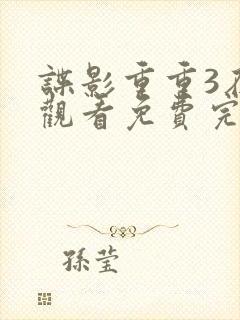 諜影重重3在
觀看免費完
孫瑩